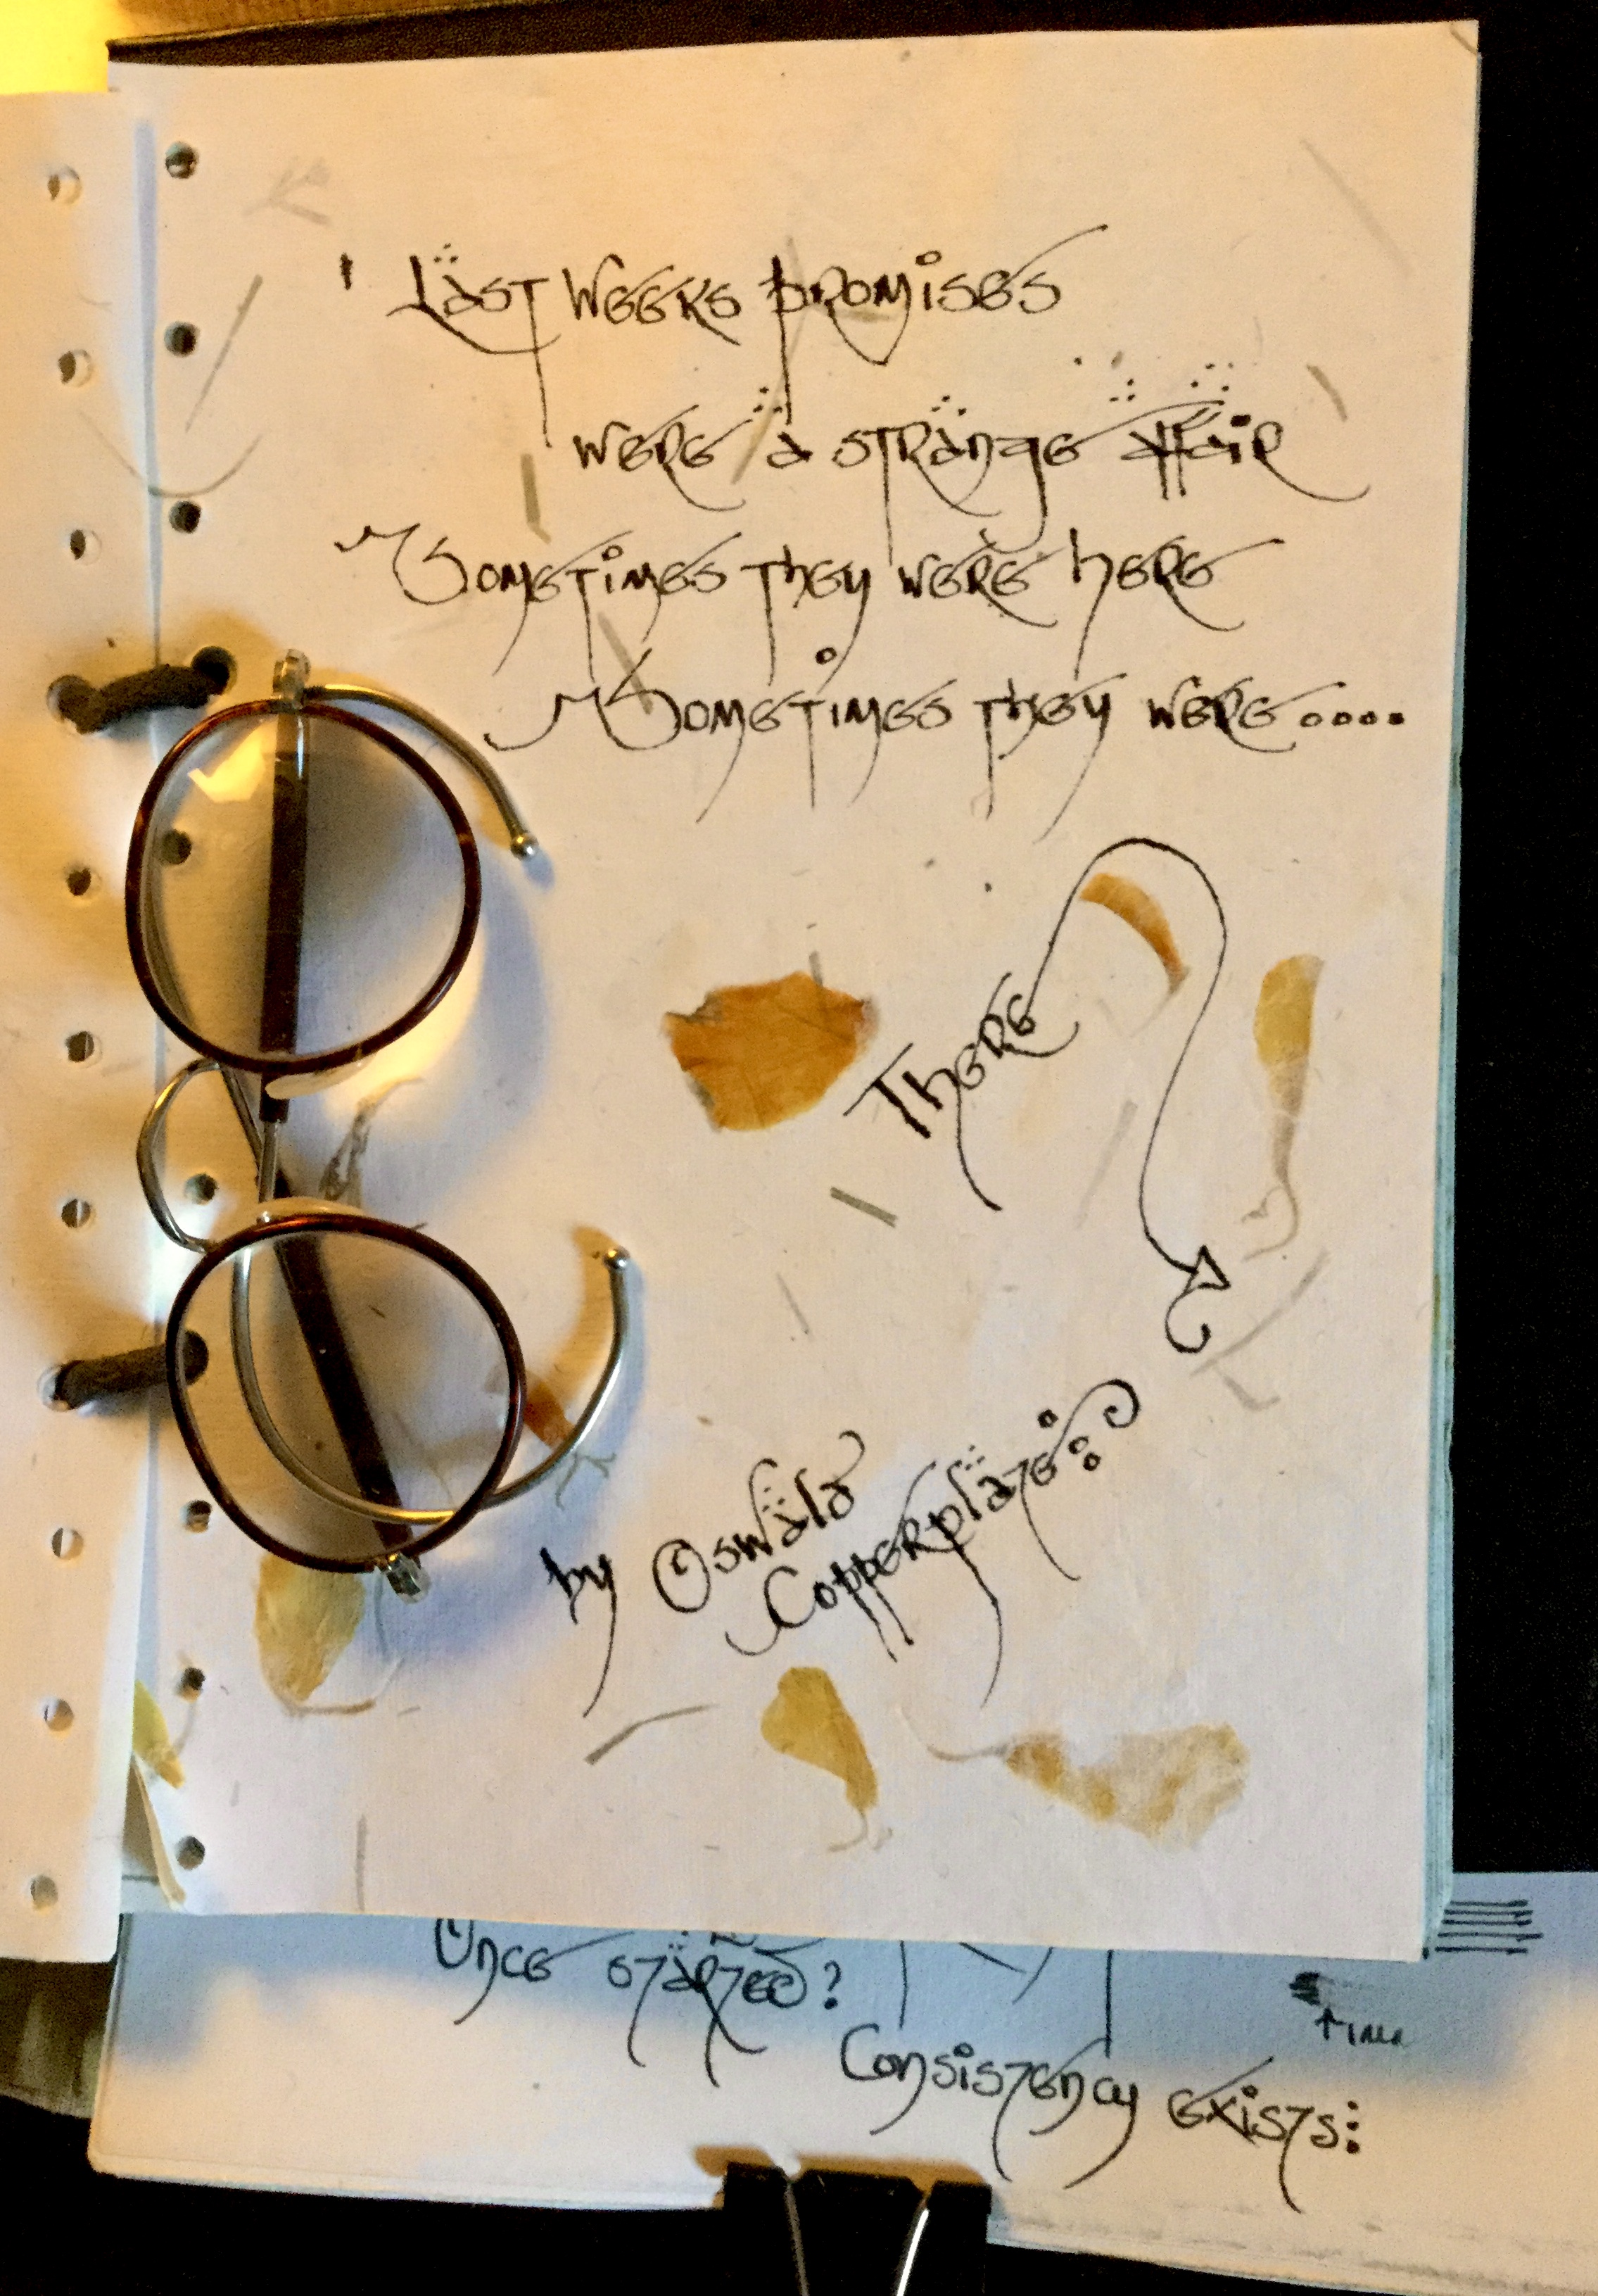 ' Last weeks promises
were a strange affair
Sometimes they were here
Sometimes they were....
There
by Oswald
Copperplate
Once started?
Consistency exists: